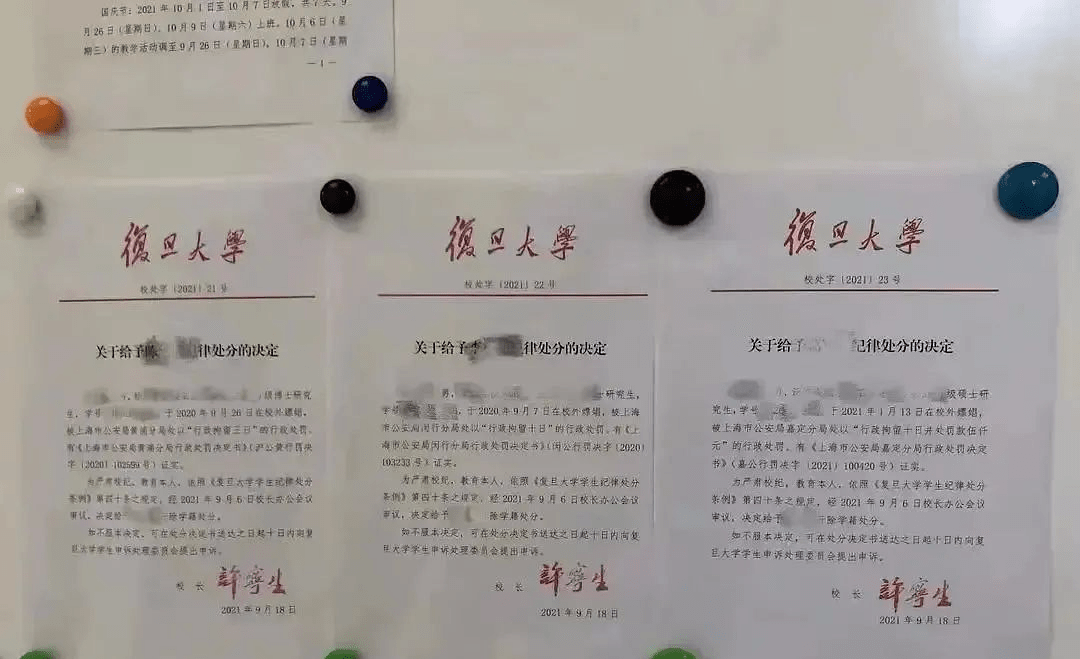 国庆节：2021年10月1日至10月7日放假，共7天。9
月26日（星期日）、10月9日（星期六）上班。10月6日（星
期三）的教学活动调至9月26日（星期日），10月7日（星期
—1—
復旦大學
校处字〔2021〕21号
关于给予陈 纪律处分的决定
级博士研究
生，学号 于2020年9月26日在校外嫖娼，
被上海市公安局黄浦分局处以“行政拘留三日”的行政处罚。
有《上海市公安局黄浦分局行政处罚决定书》（沪公黄行罚决
字〔2020〕102599号）证实。
为严肃校纪，教育本人，依照《复旦大学学生纪律处分
条例》第四十条之规定，经2021年9月6日校长办公会议
审议，决定给 除学籍处分。
如不服本决定，可在处分决定书送达之日起十日内向复
旦大学学生申诉处理委员会提出申诉。
校 长 許寧生
2021年9月18日
復旦大學
校处字〔2021〕22号
关于给予李 纪律处分的决定
男， 士研究生，
学号 ，于2020年9月7日在校外嫖娼，被上海
市公安局闵行分局处以“行政拘留十日”的行政处罚。有《上
海市公安局闵行分局行政处罚决定书》（闵公行罚决字〔2020〕
103233号）证实。
为严肃校纪，教育本人，依照《复旦大学学生纪律处分
条例》第四十条之规定，经2021年9月6日校长办公会议
审议，决定给予 除学籍处分。
如不服本决定，可在处分决定书送达之日起十日内向复
旦大学学生申诉处理委员会提出申诉。
校 长 許寧生
2021年9月18日
復旦大學
校处字〔2021〕23号
关于给予 纪律处分的决定
级硕士研
究生，学号 于2021年1月13日在校外嫖娼，
被上海市公安局嘉定分局处以“行政拘留十日并处罚款伍仟
元”的行政处罚。有《上海市公安局嘉定分局行政处罚决定
书》（嘉公行罚决字〔2021〕100420号）证实。
为严肃校纪，教育本人，依照《复旦大学学生纪律处分
条例》第四十条之规定，经2021年9月6日校长办公会议
审议，决定给予 除学籍处分。
如不服本决定，可在处分决定书送达之日起十日内向复
旦大学学生申诉处理委员会提出申诉。
校 长 許寧生
2021年9月18日